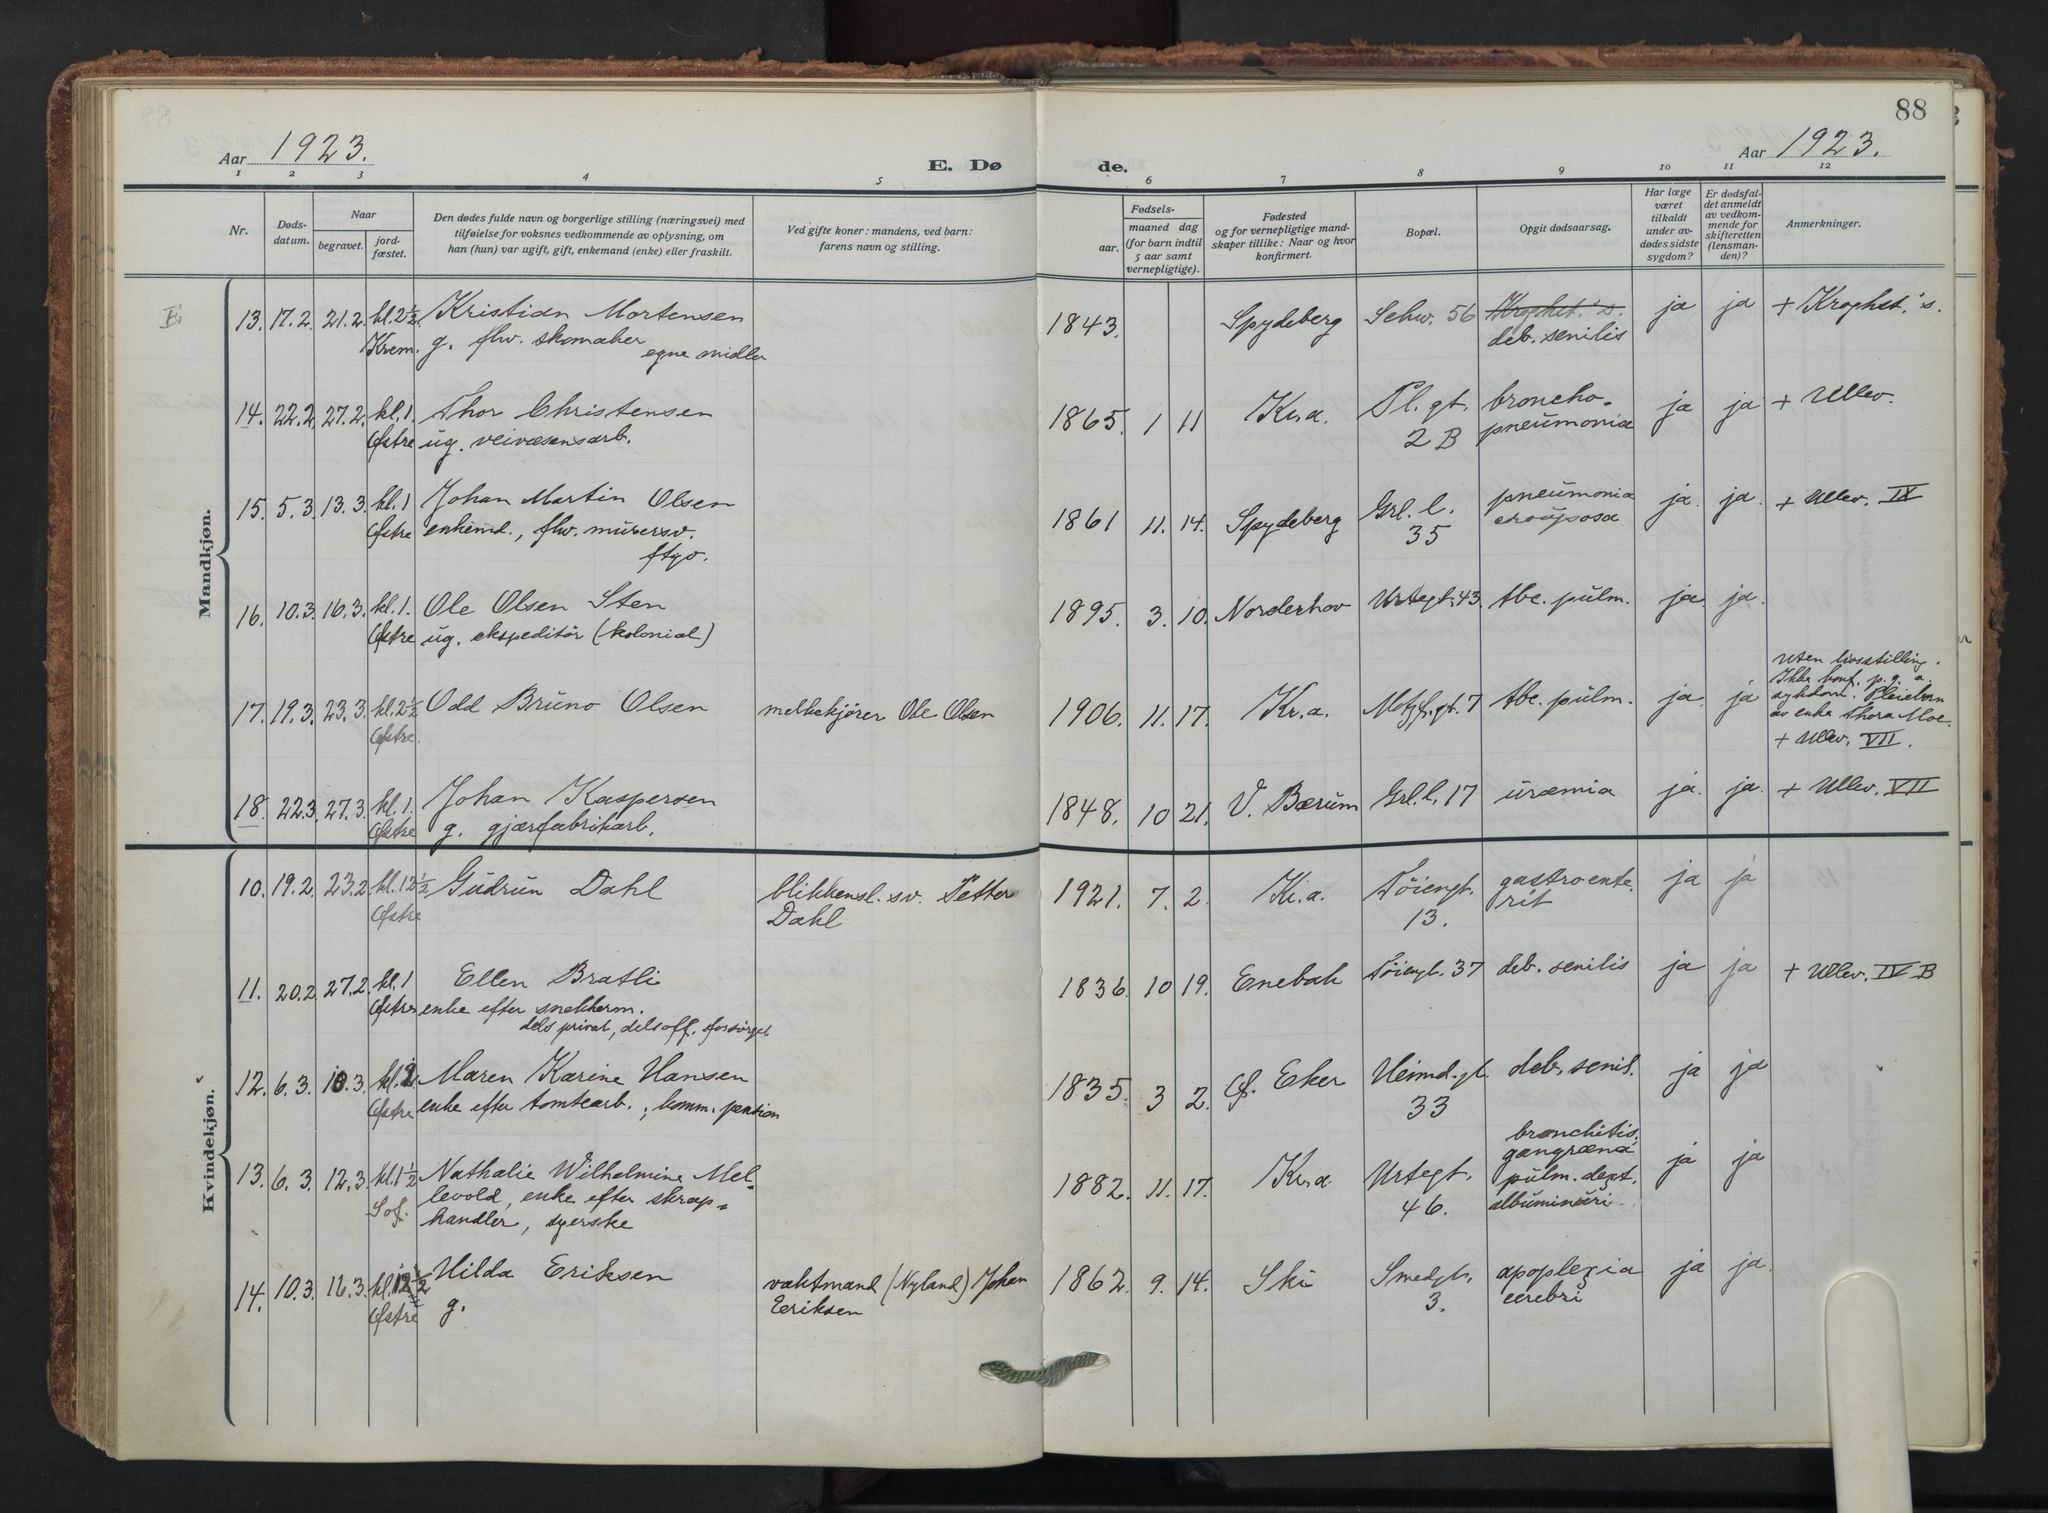 88
Aar 1923.
E. Dø
de.
Aar 1923.
1 2 3 4 5 6 7 8 9 10 11 12
Nr.
Døds-
datum.
Naar
begravet.
jord-
fæstet.
Den dødes fulde navn og borgerlige stilling (næringsvei) med
tilføielse for voksnes vedkommende av oplysning, om
han (hun) var ugift, gift, enkemand (enke) eller fraskilt.
Ved gifte koner: mandens, ved barn:
farens navn og stilling.
Fødsels-
aar.
maaned dag
(for barn indtil
5 aar samt
vernepligtige).
Fødested
og for vernepligtige mand-
skaper tillike: Naar og hvor
konfirmert.
Bopæl.
Opgit dødsaarsag.
Har læge
været
tilkaldt
under av-
dødes sidste
sygdom?
Er dødsfal-
det anmeldt
av vedkom-
mende for
skifteretten
(lensman-
den)?
Anmerkninger.
Mandkjøn.
13. 17.2. 21.2. kl.2½ Kristian Mortensen 1843. Spydeberg Schw. 56 Krophst.'s. ja ja + Krophst.'s.
Krem. g. fhv. skomaker deb. senilis
egne midler
14. 22.2. 27.2. kl.1. Thor Christensen 1865. 1 11 Kr.a. Pl.gt. broncho- ja ja + Ullev.
Østre ug. veivæsensarb. 2 B pneumonia
15. 5.3. 13.3. kl.1 Johan Martin Olsen 1861 11. 14. Spydeberg Grl.l. pneumonia ja. ja. + Ullev. IX
Østre enkemd., fhv. murersv. 35 crouposa
ftgv.
16. 10.3. 16.3. kl.1. Ole Olsen Sten 1895. 3. 10. Norderhov Urtegt.43. tbc. pulm. ja. ja.
Østre ug. ekspeditör (kolonial)
17. 19.3. 23.3. kl.2½ Odd Bruno Olsen melkekjører Ole Olsen 1906. 11. 17. Kr.a. Motzf.gt.7 tbc. pulm. ja. ja
Østre.
Uten livsstilling.
Ikke konf. p.g.a.
sykdom. Pleiebarn
av enke Thora Moe.
+ Ullev. VII.
18. 22.3. 27.3. kl.1. Johan Kaspersen 1848. 10 21. V. Bærum Grl.l.17 uræmia ja. ja. + Ullev. VII
Østre g. gjærfabrikarb.
Kvindekjøn.
10. 19.2. 23.2. kl.12½ Gudrun Dahl blikkensl.sv. Petter 1921. 7. 2. Kr.a. Töiengt. gastroente- ja ja
Østre Dahl 13. rit
11. 20.2. 27.2. kl.1 Ellen Bratli 1836. 10 19. Enebak Töiengt. 37 deb. senilis ja ja + Ullev. IV B
Østre enke efter snekkerm.
dels privat, dels off. forsörget
12. 6.3. 10.3. kl. Maren Karine Hansen 1835. 3 2. Ø. Eker Heimd.gt. deb. senil. ja ja
Østre enke efter tomtearb.; komm. pension 33
13. 6.3. 12.3. kl.1½ Nathalie Wilhelmine Mel- 1882. 11. 17. Kr.a Urtegt. bronchitis. ja ja
Sof. levold, enke efter skrap- 46. gangræna
handler, syerske pulm. dext.
albuminuri.
14. 10.3. 16.3. kl.12½ Hilda Eriksen vaktmand (Nyland) Johan 1862. 9. 14. Ski Smedgt. apoplexia ja ja.
Østre g. Eriksen 3. cerebri